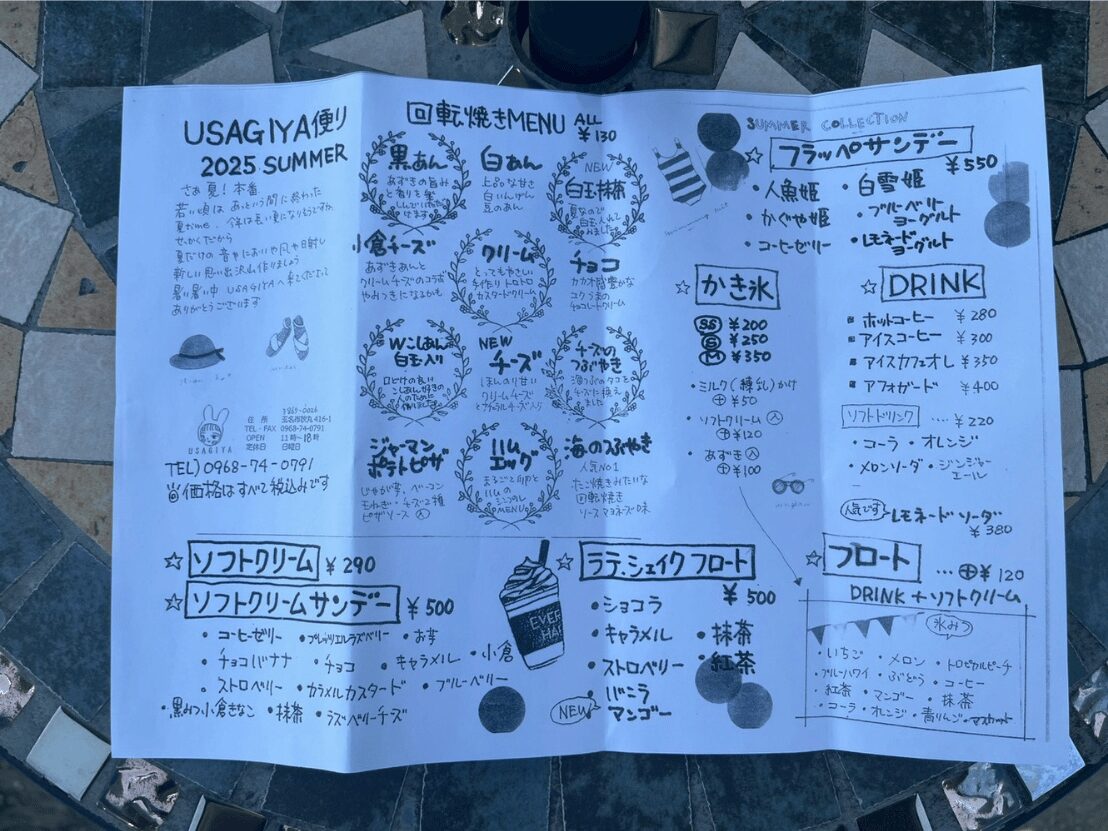 USAGIYA便り
2025 SUMMER
さぁ 夏！本番
若い頃は あっという間に終わった
せっかくだから
新しい思い出沢山作りましょう
暑い暑い中 USAGIYAへ来てくださって
ありがとうございます
USAGIYA
〒869-0026
住 所 玉名市築丸416-1
TEL・FAX 0968-74-0791
OPEN 11時〜18時
定休日 日曜日
TEL) 0968-74-0791
価格はすべて税込みです
回転焼きMENU ALL ¥130
黒あん
あずきの旨み
と香りを楽
しんでいただ
けます
白あん
上品な甘さ
白いんげん
豆のあん
NEW
白玉抹茶
夏なので
白玉入れて
みました
小倉チーズ
あずきあんと
クリームチーズのコラボ
やみつきになるかも
クリーム
とってもやさしい
手作りトロトロ
カスタードクリーム
チョコ
カカオ感豊かな
コクうまの
チョコレートクリーム
Wこしあん
白玉入り
口どけの良い
こしあん好きの
人のために
作りました
NEW
チーズ
ほんのり甘い
クリームチーズ
とナチュラルチーズ入り
チーズの
つぶやき
海つぶのタコを
チーズに換え
ました
ジャーマン
ポテトピザ
じゃが芋、ベーコン
玉ねぎ・チーズ2種
ピザソース 入
ハム
エッグ
まるごと1ヶと
ハムの
シンプル
MENU
海のつぶやき
人気NO.1
たこ焼きみたいな
回転焼き
ソースマヨネーズ味
SUMMER COLLECTION
☆ フラッペサンデー ¥550
・人魚姫 ・白雪姫
・かぐや姫 ・ブルーベリーヨーグルト
・コーヒーゼリー ・レモネードヨーグルト
☆ かき氷
SS ¥200
S ¥250
M ¥350
・ミルク(練乳)かけ
⊕ ¥50
・ソフトクリーム 入
⊕ ¥120
・あずき 入
⊕ ¥100
☆ DRINK
ホットコーヒー ¥280
アイスコーヒー ¥300
アイスカフェオレ ¥350
アフォガード ¥400
ソフトドリンク …. ¥220
・コーラ ・オレンジ
・メロンソーダ ・ジンジャーエール
人気です レモネードソーダ
¥380
☆ ソフトクリーム ¥290
☆ ソフトクリームサンデー ¥500
・コーヒーゼリー ・プレッツェルラズベリー ・お芋
・チョコバナナ ・チョコ ・キャラメル ・小倉
・ストロベリー ・カラメルカスタード ・ブルーベリー
・黒みつ小倉きなこ ・抹茶 ・ラズベリーチーズ
EVER
HAP
☆ ラテ、シェイク フロート
¥500
・ショコラ
・キャラメル ・抹茶
・ストロベリー ・紅茶
・バニラ
NEW マンゴー
☆ フロート … ⊕¥120
DRINK + ソフトクリーム
氷みつ
・いちご ・メロン ・トロピカルピーチ
・ブルーハワイ ・ぶどう ・コーヒー
・紅茶 ・マンゴー ・抹茶
・コーラ ・オレンジ ・青りんご ・マスカット